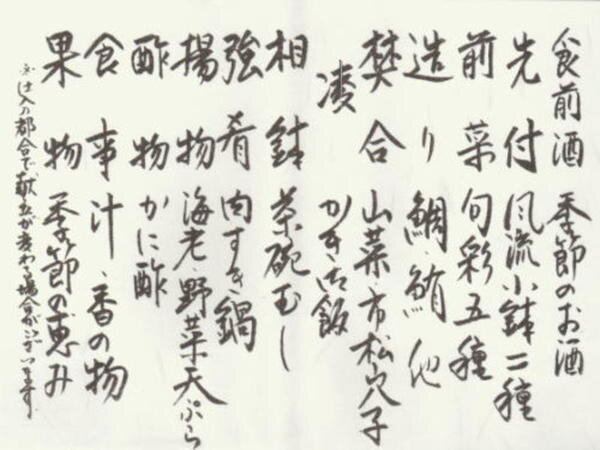 食前酒 季節のお酒
先付 風流小鉢二種
前菜 旬彩五種
造り 鯛、鮪 他
焚合 山菜・市松穴子
凌 かき御飯
相鉢 茶碗むし
強肴 肉すき鍋
揚物 海老、野菜天ぷら
酢物 かに酢
食事 汁、香の物
果物 季節の恵み
※仕入の都合で、献立が変わる場合がございます。